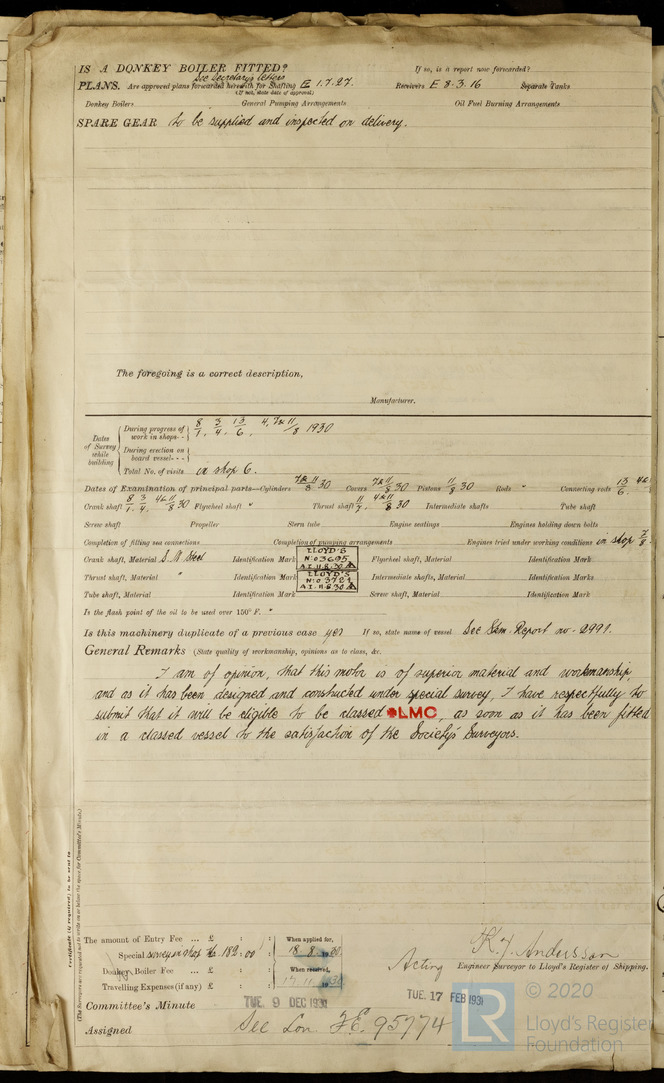 IS A DONKEY BOILER FITTED? If so, is a report now forwarded?
See Secretary's letters
PLANS. Are approved plans forwarded herewith for Shafting E 1.7.27. Receivers E 8.3.16 Separate Tanks
(If not, state date of approval)
Donkey Boilers General Pumping Arrangements Oil Fuel Burning Arrangements
SPARE GEAR to be supplied and inspected on delivery.
The foregoing is a correct description,
Manufacturer.
Dates of Survey while building
During progress of work in shops - - 8/7, 3/4, 13/6, 4, 7 & 11/8 1930
During erection on board vessel - - -
Total No. of visits in shop 6.
Dates of Examination of principal parts—Cylinders 7 & 11/8 30 Covers 7 & 11/8 30 Pistons 11/8 30 Rods " Connecting rods 13/6.
Crank shaft 8/7, 3/4, 4 & 11/8 30 Flywheel shaft " Thrust shaft 11/7, 4 & 11/8 30 Intermediate shafts Tube shaft
Screw shaft Propeller Stern tube Engine seatings Engines holding down bolts
Completion of fitting sea connections Completion of pumping arrangements Engines tried under working conditions in shop 7/8
Crank shaft, Material S. M Steel Identification Mark LLOYD'S No 3695 A.I. 11.8.30 Flywheel shaft, Material Identification Mark
Thrust shaft, Material " Identification Mark LLOYD'S No 3724 A.I. 11.8.30 Intermediate shafts, Material Identification Marks
Tube shaft, Material Identification Mark Screw shaft, Material Identification Mark
Is the flash point of the oil to be used over 150° F. "
Is this machinery duplicate of a previous case yes If so, state name of vessel See Skm. Report no 2991.
General Remarks (State quality of workmanship, opinions as to class, &c.
I am of opinion, that this motor is of superior material and workmanship
and as it has been designed and constructed under special survey, I have respectfully to
submit that it will be eligible to be classed LMC, as soon as it has been fitted
in a classed vessel to the satisfaction of the Society's Surveyors.
Certificate (if required) to be sent to
(The Surveyors are requested not to write on or below the space for Committee's Minute.)
The amount of Entry Fee ... £ : : When applied for,
Special survey in shop Kr. 182.00 : 18.8.1930.
Donkey Boiler Fee ... £ : : When received,
Travelling Expenses (if any) £ : :
K. J. Andersson
Acting Engineer Surveyor to Lloyd's Register of Shipping.
Committee's Minute TUE. 9 DEC 1930 TUE. 17 FEB 1931
Assigned See Lon F.E. 95774
© 2020
LR
Lloyd's Register
Foundation